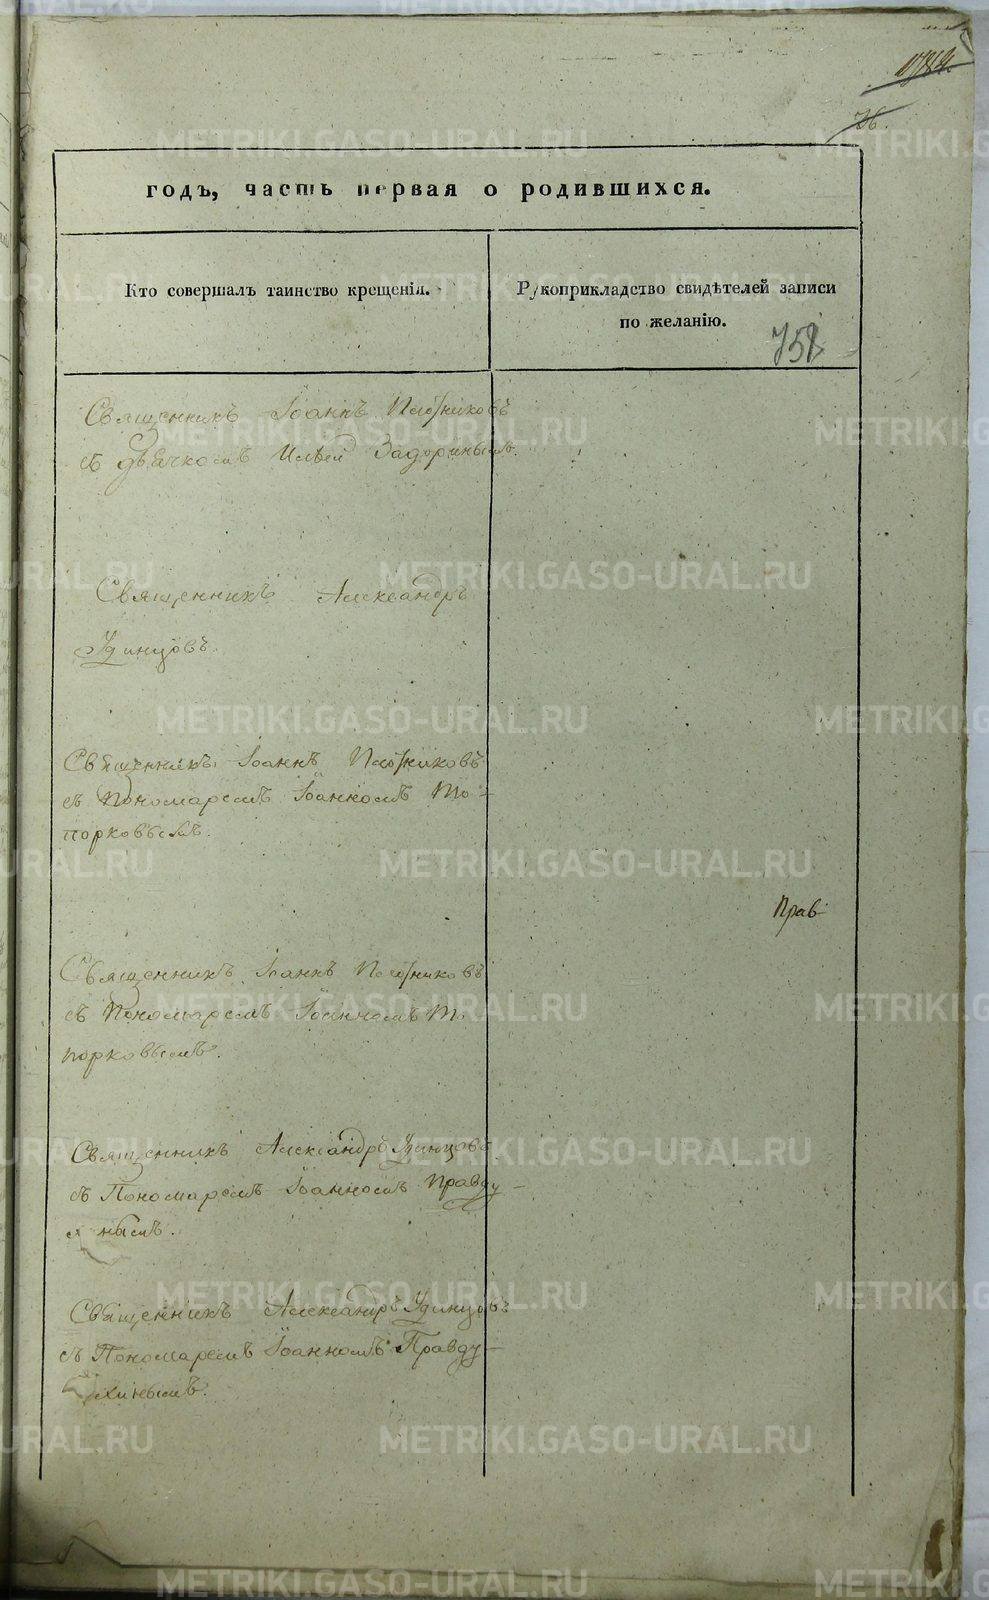 36.
годъ, часть первая о родившихся.
Кто совершалъ таинство крещенія.
Рукоприкладство свидѣтелей записи
по желанію.
758
Священникъ Іоаннъ Плотниковъ
съ дьячкомъ Ильей Задоринымъ.
Священникъ Александръ
Удинцовъ.
Священникъ Іоаннъ Плотниковъ
съ Пономаремъ Іоанномъ То-
порковымъ.
Прав-
Священникъ Іоаннъ Плотниковъ
съ Пономаремъ Іоанномъ То
порковымъ.
Священникъ Александръ Удинцовъ
съ Пономаремъ Іоанномъ Правду-
нымъ.
Священникъ Александръ Удинцовъ
съ Пономаремъ Іоанномъ Правду-
хинымъ.
METRIKI.GASO-URAL.RU